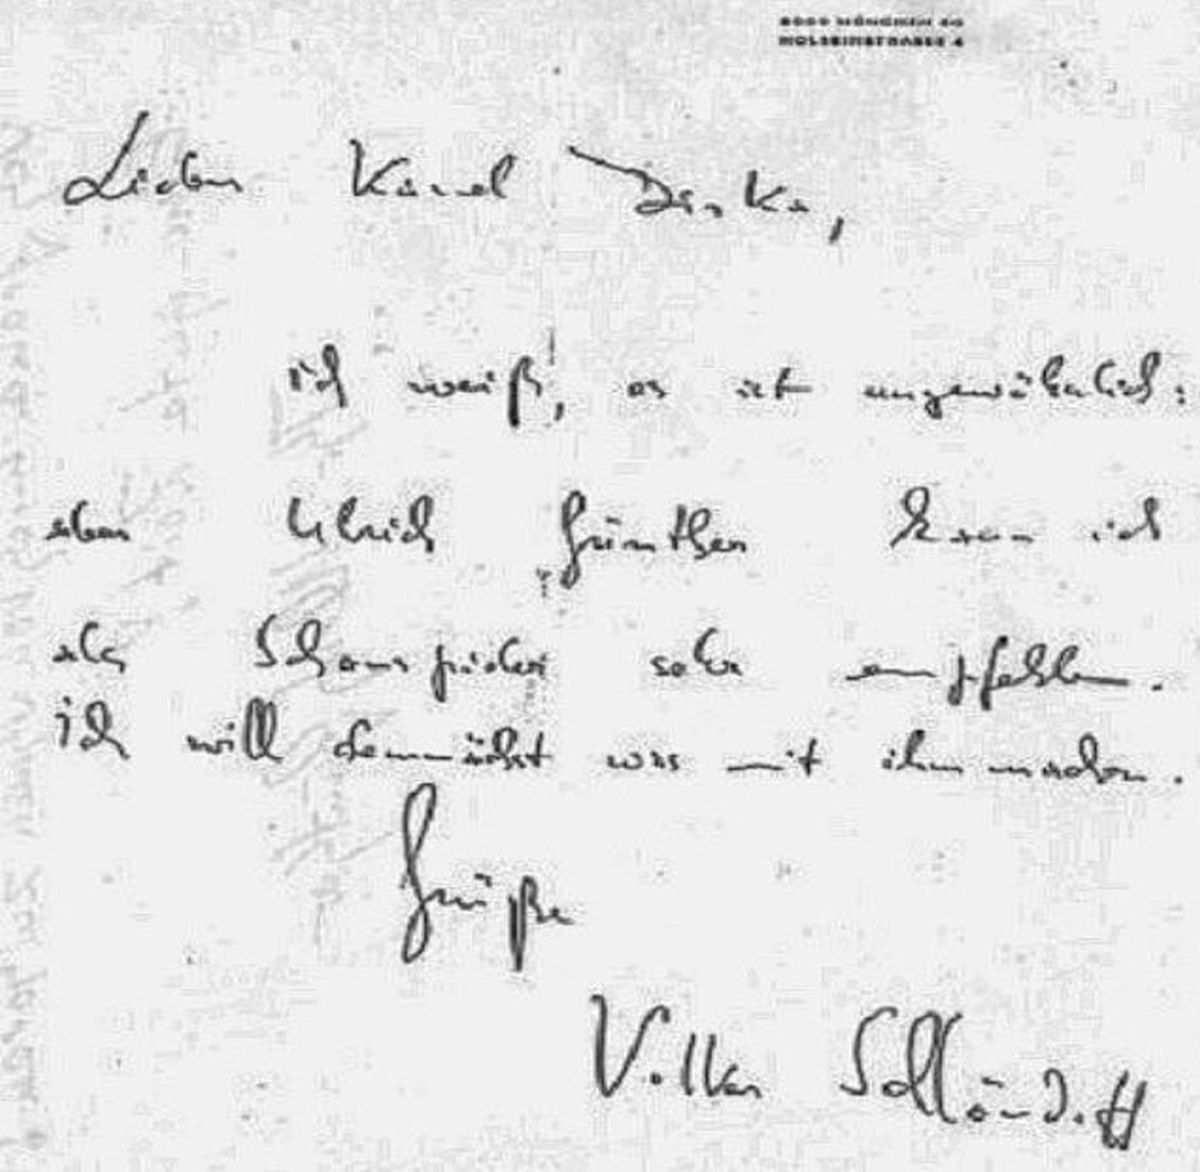 8000 MÜNCHEN 40
Lieber Karel Dirka,
ich weiß, es ist ungewöhnlich:
aber Ulrich Günther kann ich
als Schauspieler sehr empfehlen.
ich will demnächst was mit ihm machen.
Grüße
Volker Schlöndorff